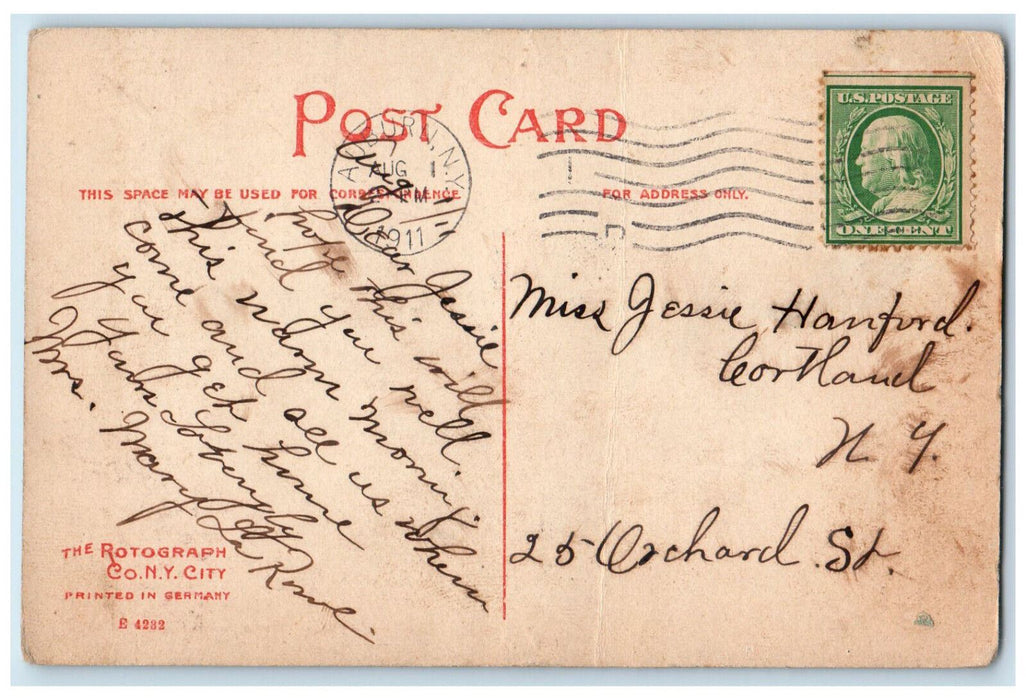 POST CARD
AUBURN, N.Y.
AUG 1
PM
1911
U.S. POSTAGE
ONE CENT
THIS SPACE MAY BE USED FOR CORRESPONDENCE
FOR ADDRESS ONLY.
Aug 1
Dear Jessie
hope this will
find you well.
this warm morning.
come and see us when
you get home
Yours Lovingly
Mrs. Mary La Rowe
Miss Jessie Hanford.
Cortland
N Y.
25 Orchard St.
THE ROTOGRAPH
CO. N.Y. CITY
PRINTED IN GERMANY
E 4232